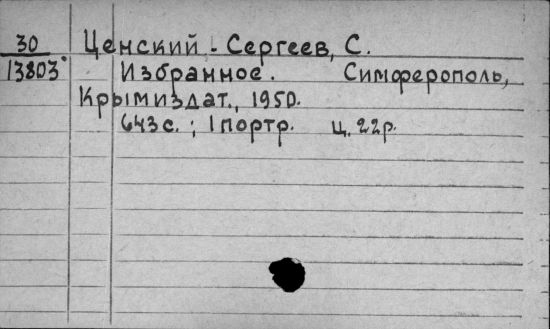 30 Ценский - Сергеев, С.
13803° Избранное. Симферополь,
Крымиздат., 1950.
643с.; 1 портр. ц. 22р.